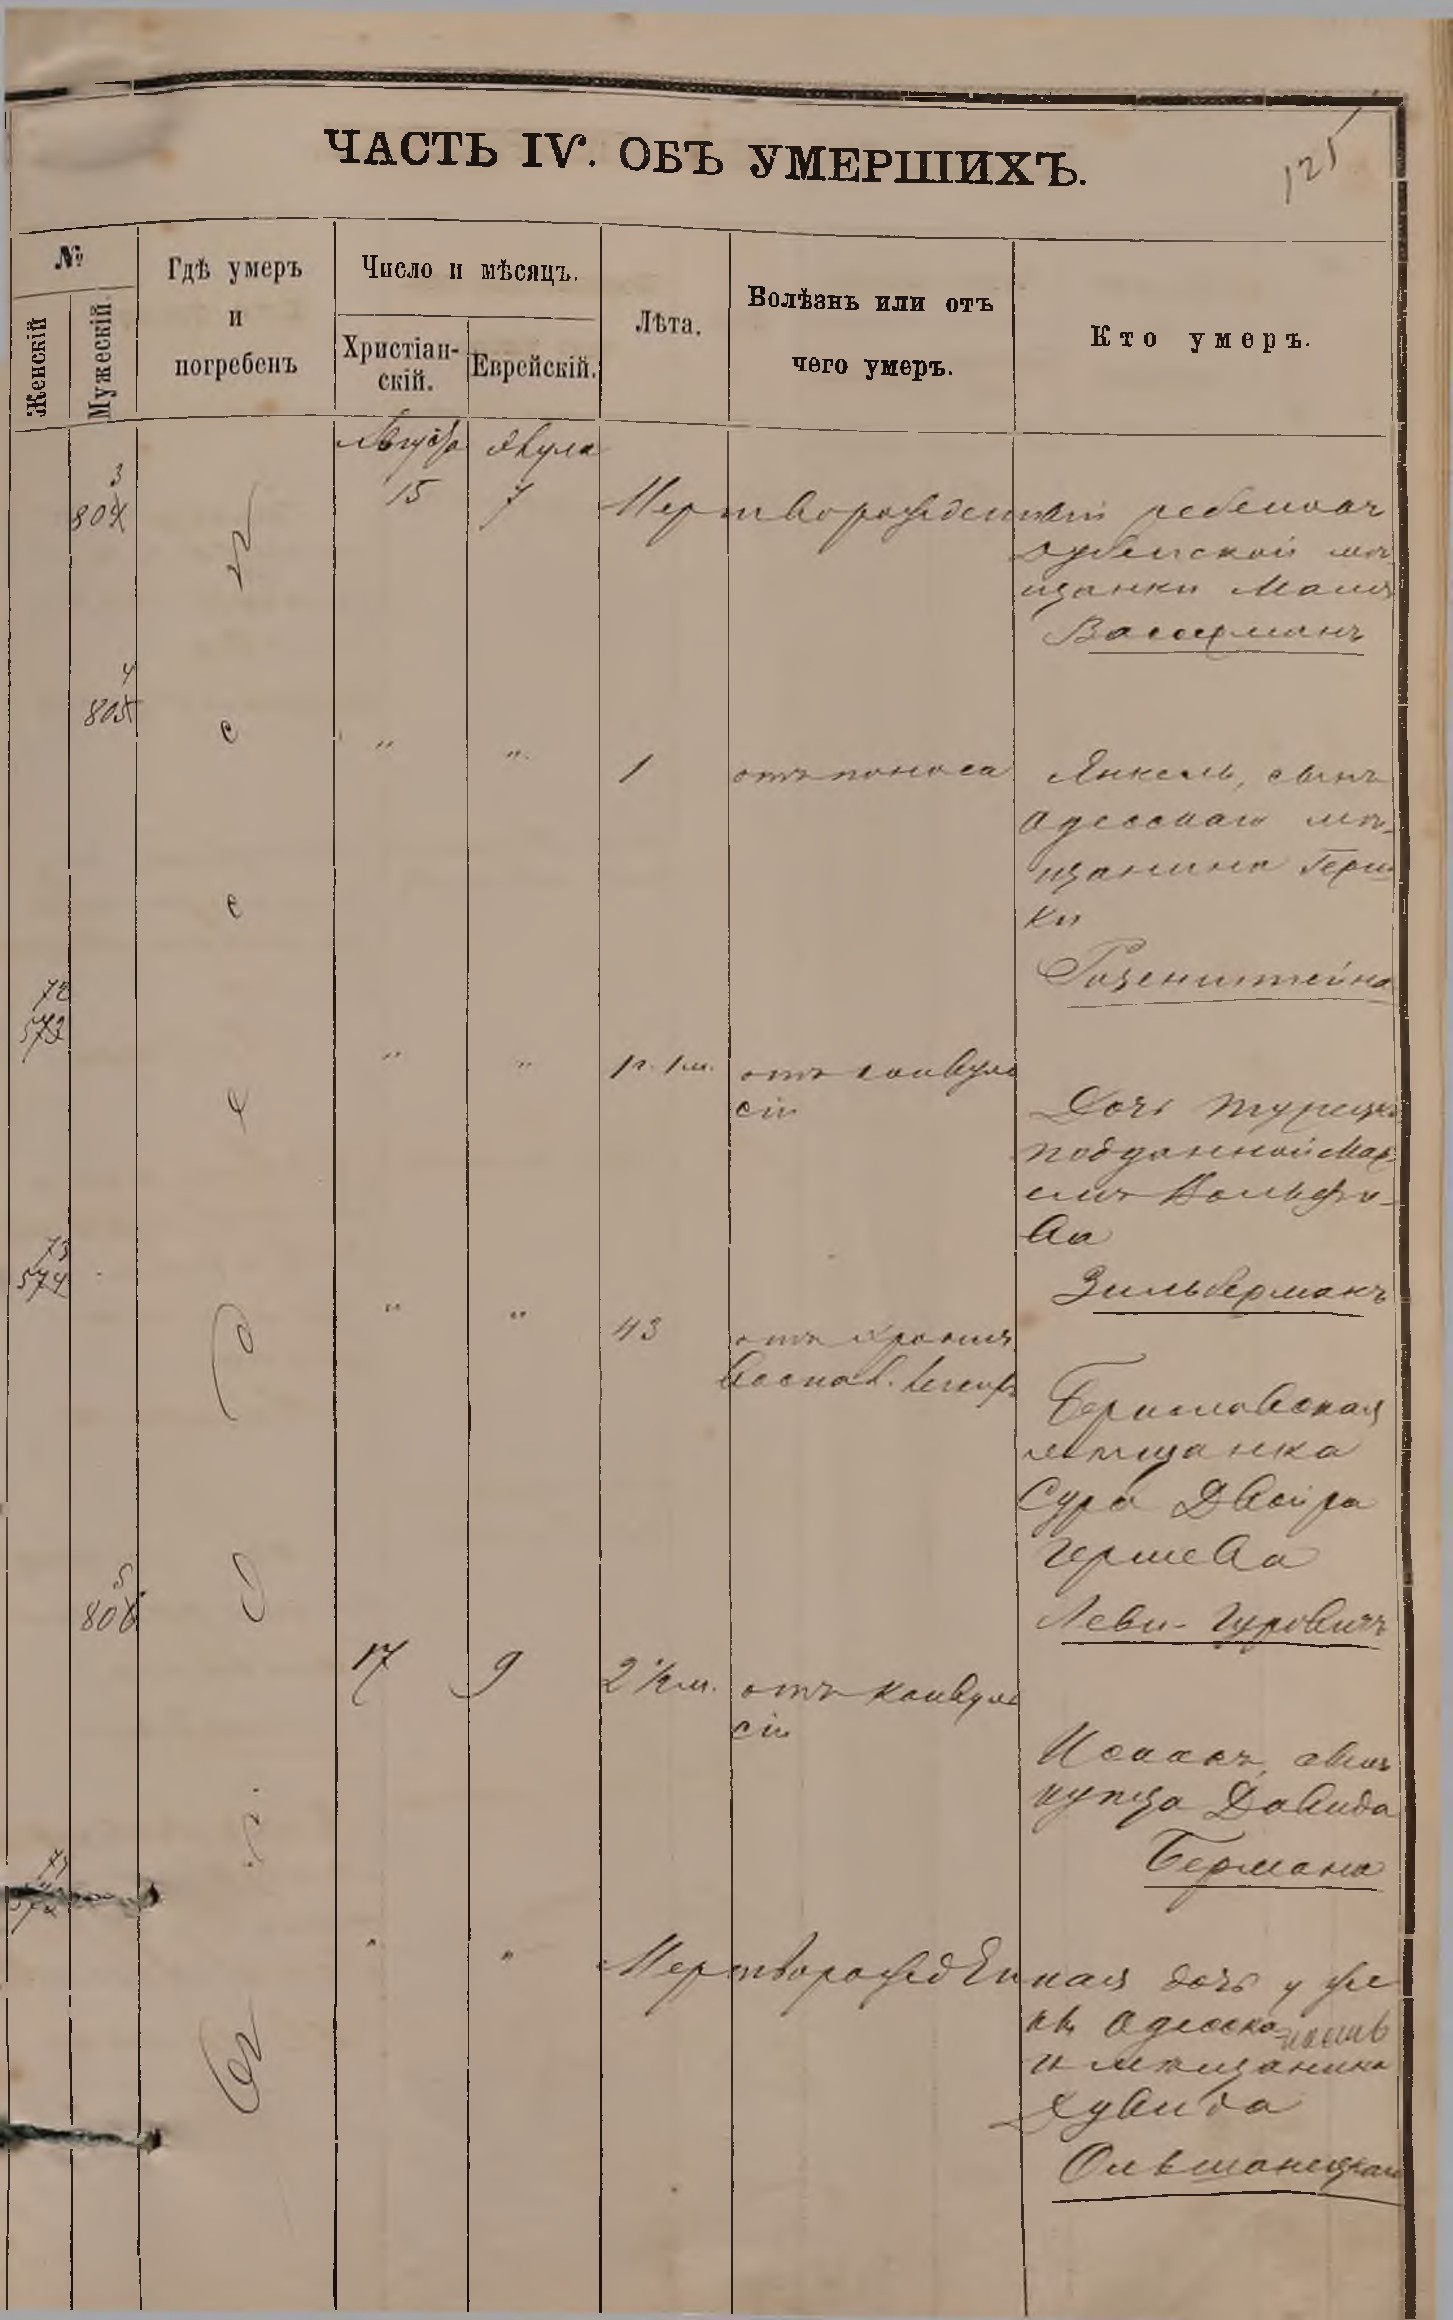 125
ЧАСТЬ IV. ОБЪ УМЕРШИХЪ.
№
Женскій
Мужескій.
Гдѣ умеръ
и
погребенъ
Число и мѣсяцъ.
Христіан-
скій.
Еврейскій.
Лѣта.
Болѣзнь или отъ
чего умеръ.
Кто умеръ.
Августа
3
804
15 7 Мертворожденный ребенокъ
Дубенской мѣ
щанки
Вассерманъ
4
805
" " 1 отъ поноса Янкель, сынъ
Одесскаго мѣ-
щанина Герш
ки
Розенштейна
72
573
" " 1 г. 1 м. отъ конвуль
сіи
Дочь турецк
подданной
Вольфо-
ва
Зильберманъ
73
574
" " 43 отъ хронич
воспал. легкихъ
Бериславская
мѣщанка
Сура Двойра
Гершева
Леви-Гуровичъ
5
806
17 9 2 ½ м. отъ конвуль
сіи
Исаакъ, сынъ
купца Давида
Бермана
74
" " Мертворожденная дочь у же
ны Одесска
и мѣщанина
Дувида
Ольшанецкаго
Одесса